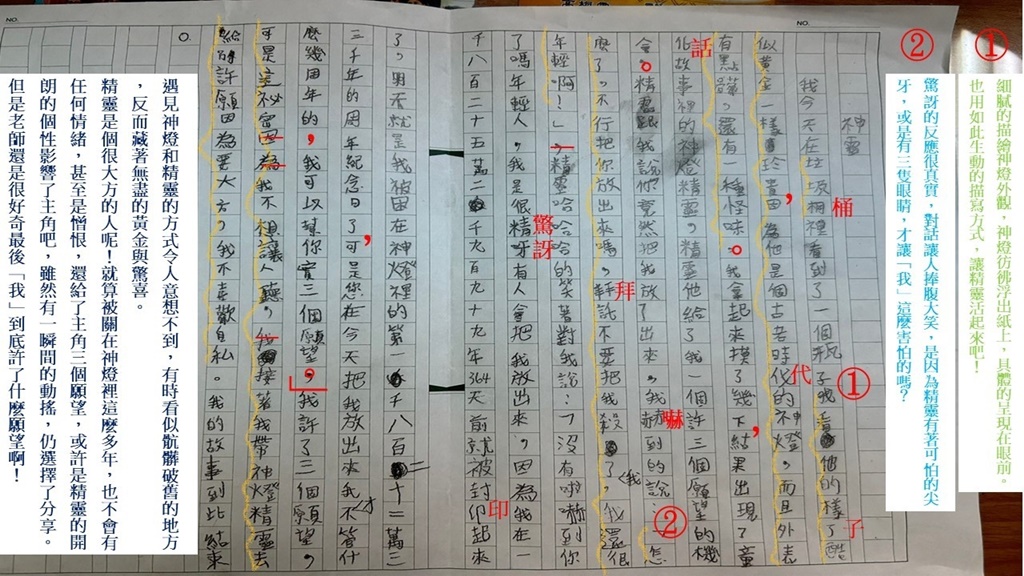 ①
細膩的描繪神燈外觀，神燈彷彿浮出紙上，具體的呈現在眼前。
也用如此生動的描寫方式，讓精靈活起來吧！
②
驚訝的反應很真實，對話讓人捧腹大笑，是因為精靈有著可怕的尖
牙，或是有三隻眼睛，才讓「我」這麼害怕的嗎？
NO.
神靈
我今天在垃圾桶裡看到了一個瓶子我看他的樣子酷
似黃金一樣珍貴因為他是個古老時代的神燈。而且外表
有點髒，還有一種怪味。我拿起來摸了幾下，結果出現了童
化故事裡的神燈精靈。精靈他給了我一個許三個願望的機
會。精靈跟我說你竟然把我放了出來。我赫到的說：怎
麼了，不行把你放出來嗎，拜託不要把我殺了，你還很
年輕啊！」精靈哈哈哈的笑著對我說：「沒有啦嚇到你
了嗎年輕人，我是很精牙有人會把我放出來，因為我在一
千八百二十五萬二千九百九十九年364天前就被封印起來
了，明天就是我被困在神燈裡的第一千八百二十二萬三
三千年的周年紀念日了，可是您在今天把放出來我才不管什
麼幾周年的，我可以幫你實三個願望。我許了三個願望，
可是是祕密因為我不想讓人聽。接著我帶神燈精靈去
給許願因為要大方，我不喜歡自私。我的故事到此結束
桶
了
代
①
話
嚇
②
拜
驚訝
印
NO.
遇見神燈和精靈的方式令人意想不到，有時看似骯髒破舊的地方
，反而藏著無盡的黃金與驚喜。
精靈是個很大方的人呢！就算被關在神燈裡這麼多年，也不會有
任何情緒，甚至是憎恨，還給了主角三個願望，或許是精靈的開
朗的個性影響了主角吧，雖然有一瞬間的動搖，仍選擇了分享。
但是老師還是很好奇最後「我」到底許了什麼願望啊！